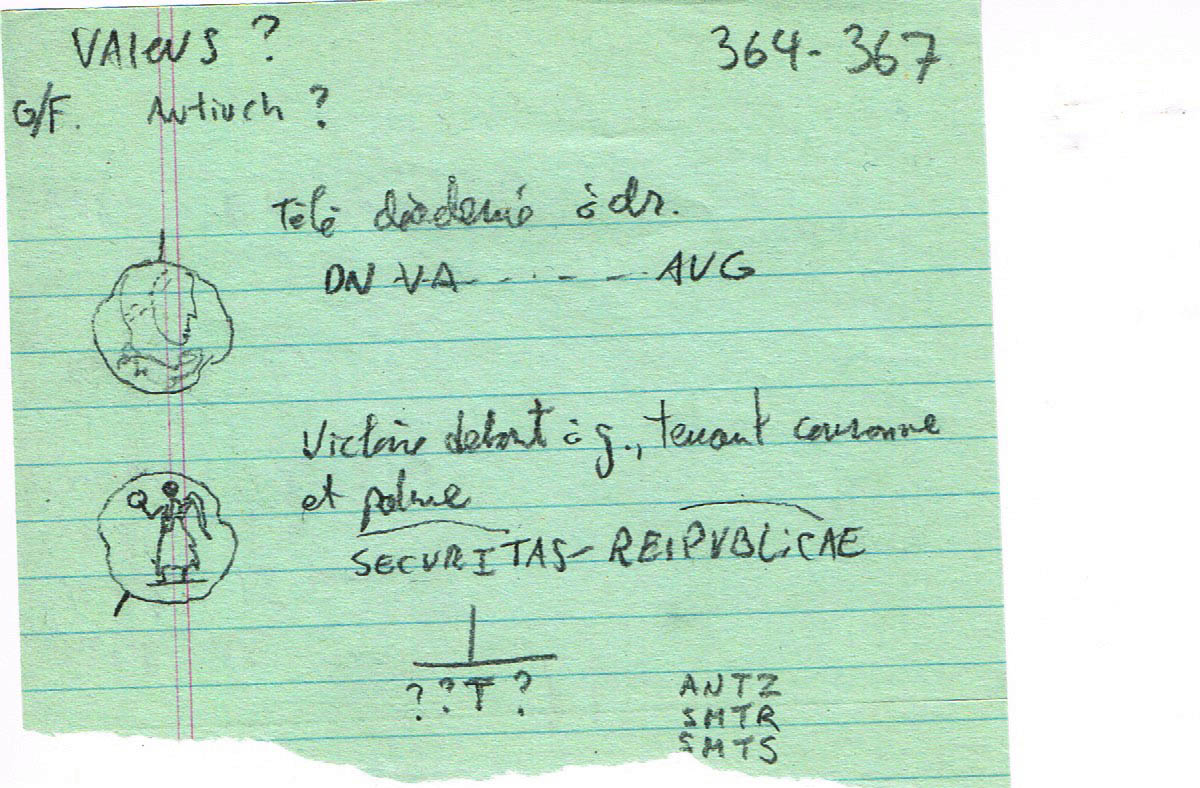 VAlens ?
364-367
G/F. Antioch ?
Tête diadémé à dr.
DN VA - - - - - AUG
Victoire debout à g., tenant couronne
et palme
SECURITAS - REIPVBLiCAE
? ? T ?
ANTZ
SMTR
SMTS